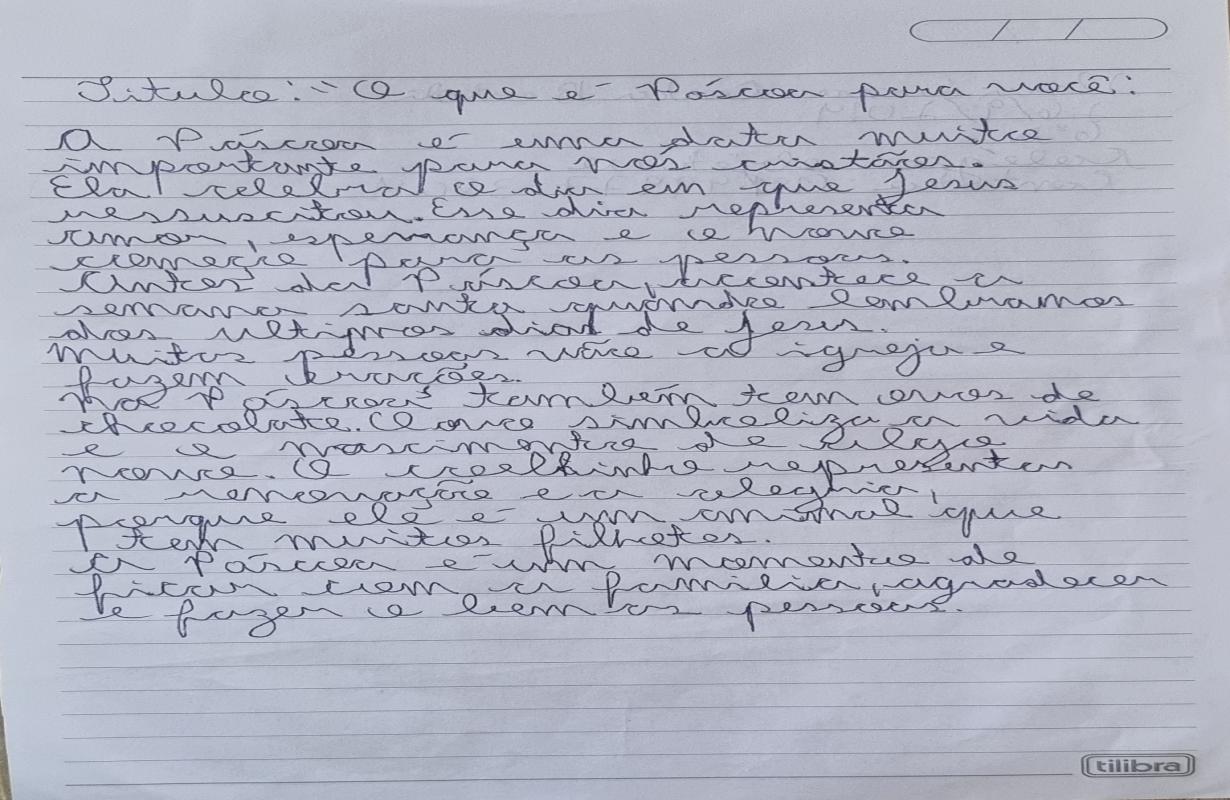 Titulo: - O que é Páscoa para você:
A Páscoa é uma data muito
importante para nos cristãos.
Ela celebra o dia em que Jesus
ressuscitou. Esse dia representa
amor, esperança e o novo
começo para as pessoas.
Antes da Páscoa, acontece a
semana santa quando lembramos
dos ultimos dias de Jesus.
Muitas pessoas vão a igreja e
fazem orações.
Na Páscoa também tem ovos de
chocolate. O ovo simboliza a vida
e o nascimento de
novo. O coelhinho representa
a renovação e a alegria,
porque ele é um animal que
tem muitos filhotes.
A Páscoa é um momento de
ficar com a familia, agradecer
e fazer o bem as pessoas.
tilibra